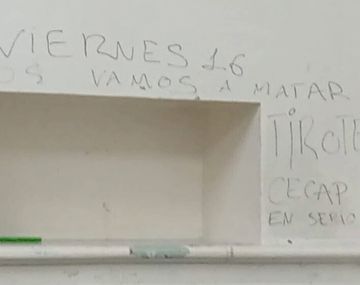 VIERNES 16
OS VAMOS A MATAR
TIROTE
CECAP
EN SERIO